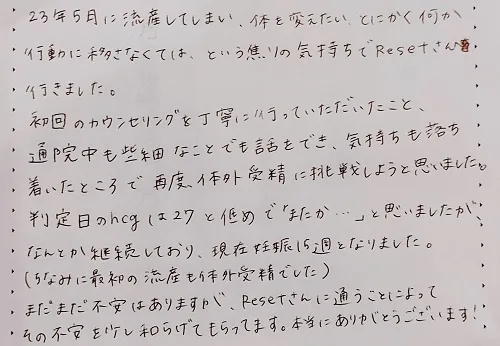 23年5月に流産してしまい、体を変えたい、とにかく何か
行動に移さなくては、という焦りの気持ちでResetさん
行きました。
初回のカウンセリングを丁寧に行っていただいたこと、
通院中も些細なことでも話をでき、気持ちも落ち
着いたところで再度、体外受精に挑戦しようと思いました。
判定日のhcgは27と低めで「またか…」と思いましたが、
なんとか継続しており、現在妊娠15週となりました。
(ちなみに最初の流産も体外受精でした)
まだまだ不安はありますが、Resetさんに通うことによって
その不安を少し和らげてもらってます。本当にありがとうございます!